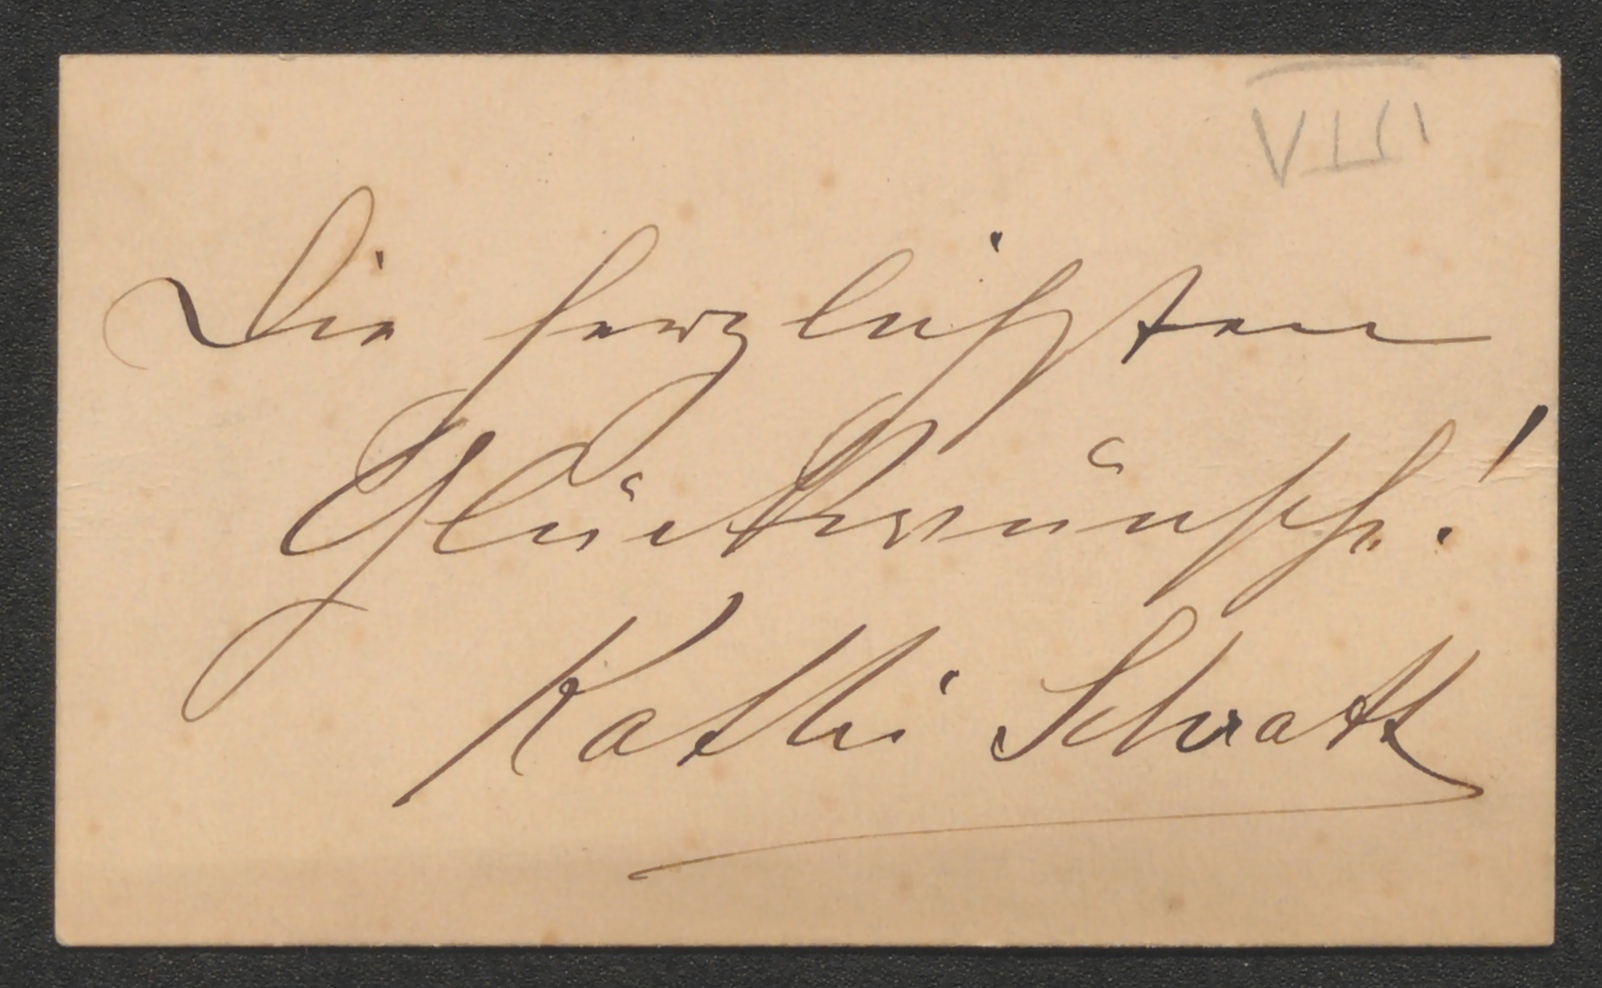 VIII
Die herzlichsten
Glückwünsche!
Kathi Schratt